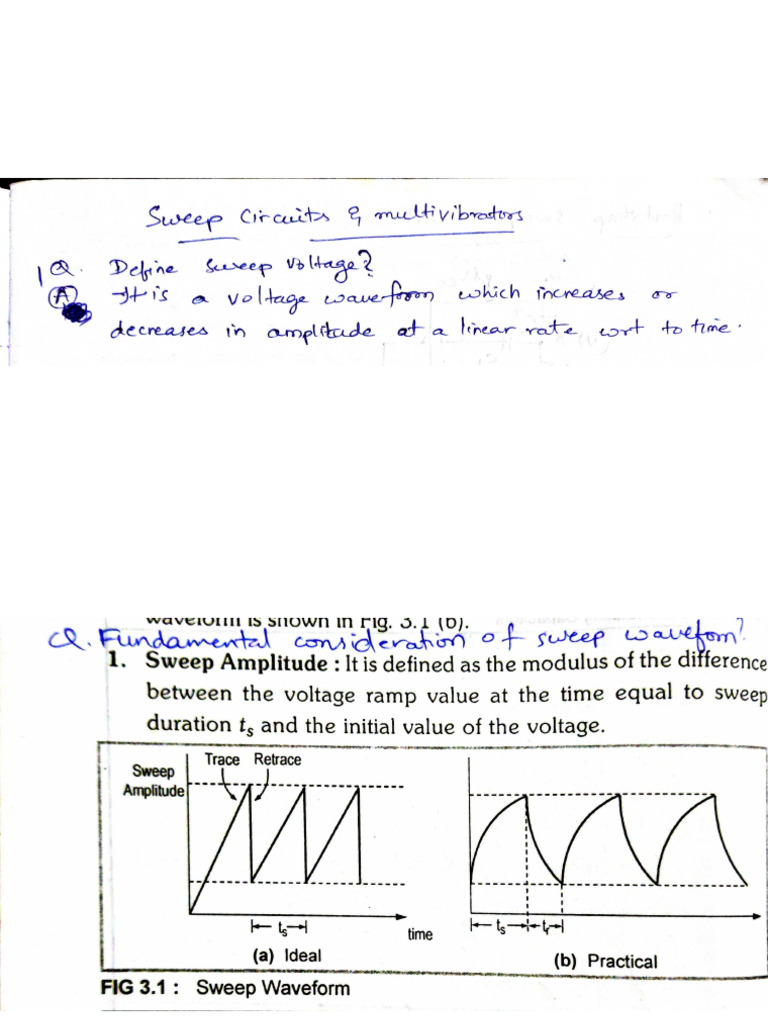 Sweep Circuits & multivibrators
1 Q. Define sweep voltage?
A It is a voltage waveform which increases or
decreases in amplitude at a linear rate wrt to time.
waveform is shown in Fig. 3.1 (b).
Q. Fundamental consideration of sweep wavefom?
1. Sweep Amplitude : It is defined as the modulus of the difference
between the voltage ramp value at the time equal to sweep
duration ts and the initial value of the voltage.
Trace Retrace
Sweep
Amplitude
ts
time
(a) Ideal
ts tr
(b) Practical
FIG 3.1 : Sweep Waveform